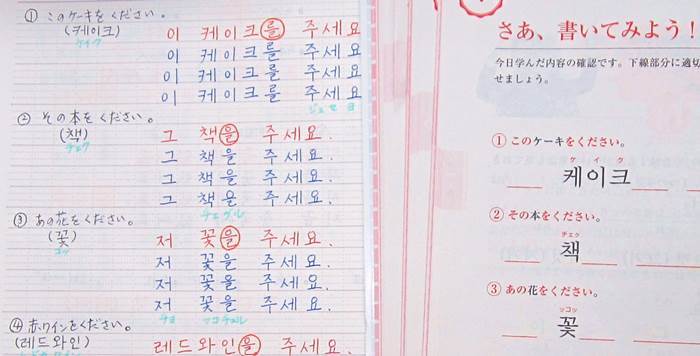 ① このケーキをください。
(케이크) 이 케이크를 주세요
ケイク
이 케이크를 주세요
이 케이크를 주세요
이 케이크를 주세요
ジュセヨ
② その本をください。
(책) 그 책을 주세요.
チェク
그 책을 주세요.
그 책을 주세요.
그 책을 주세요.
チェグル
③ あの花をください。
(꽃) 저 꽃을 주세요.
コッ
저 꽃을 주세요.
저 꽃을 주세요.
저 꽃을 주세요.
チョ ッコチュル
④ 赤ワインをください。
(레드와인) 레드와인을 주세요.
さあ、書いてみよう!
今日学んだ内容の確認です。下線部分に適切
せましょう。
① このケーキをください。
ケイク
케이크
② その本をください。
チェク
책
③ あの花をください。
ッコッ
꽃